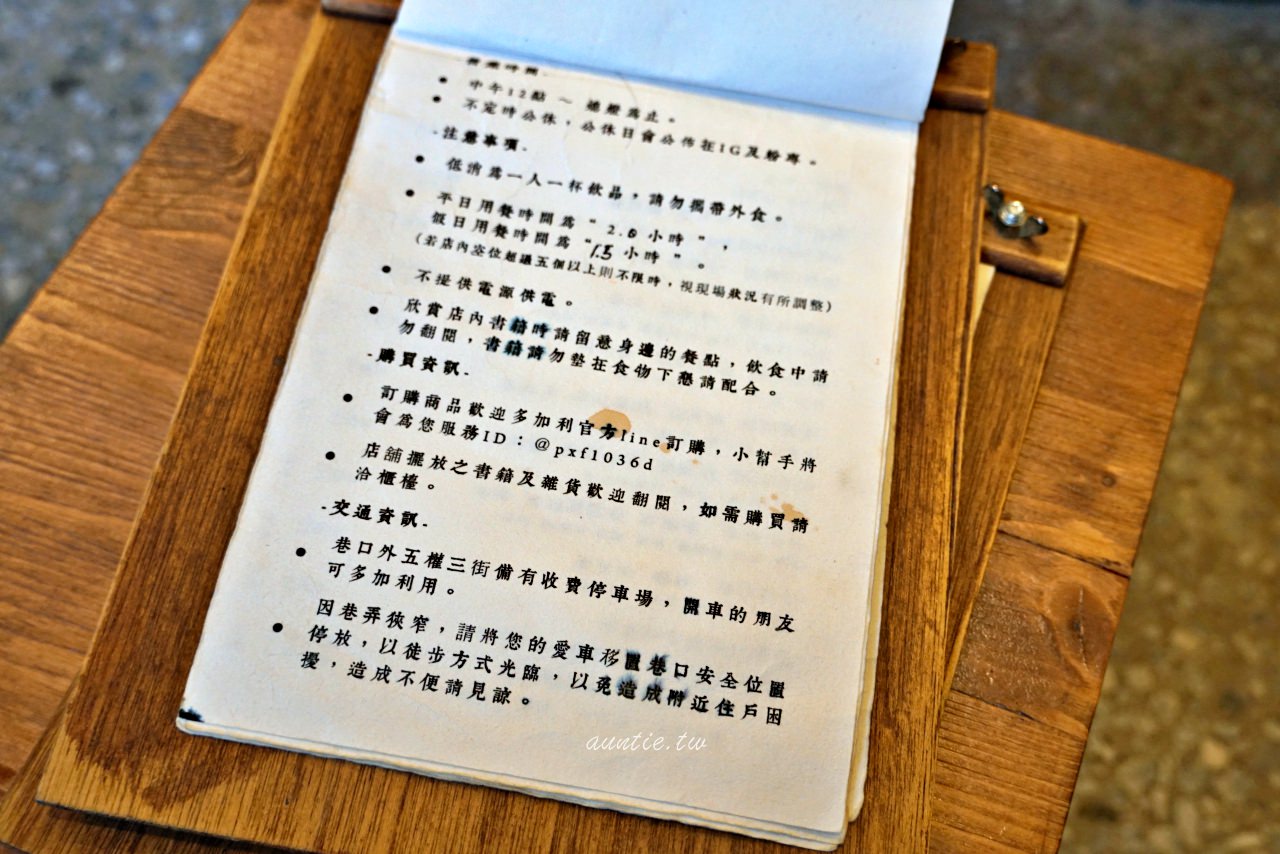 營業時間-
中午12點 ～ 熄燈為止。
不定時公休，公休日會公佈在IG及粉專。
-注意事項-
低消為一人一杯飲品，請勿攜帶外食。
平日用餐時間為“ 2.0 小時 ”，
假日用餐時間為“1.5 小時 ”。
（若店內空位超過五個以上則不限時，視現場狀況有所調整）
不提供電源供電。
欣賞店內書籍時請留意身邊的餐點，飲食中請
勿翻閱，書籍請勿墊在食物下懇請配合。
-購買資訊-
訂購商品歡迎多加利官方line訂購，小幫手將
會為您服務ID：@pxf1036d
店舖擺放之書籍及雜貨歡迎翻閱，如需購買請
洽櫃檯。
-交通資訊-
巷口外五權三街備有收費停車場，開車的朋友
可多加利用。
因巷弄狹窄，請將您的愛車移置巷口安全位置
停放，以徒步方式光臨，以免造成附近住戶困
擾，造成不便請見諒。
auntie.tw